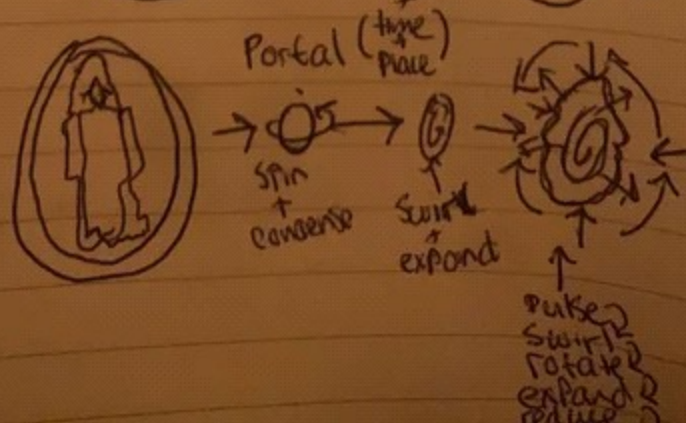 Portal (time
+
place)
spin
+
condense
swirl
+
expand
pulse
swirl
rotate
expand
reduce